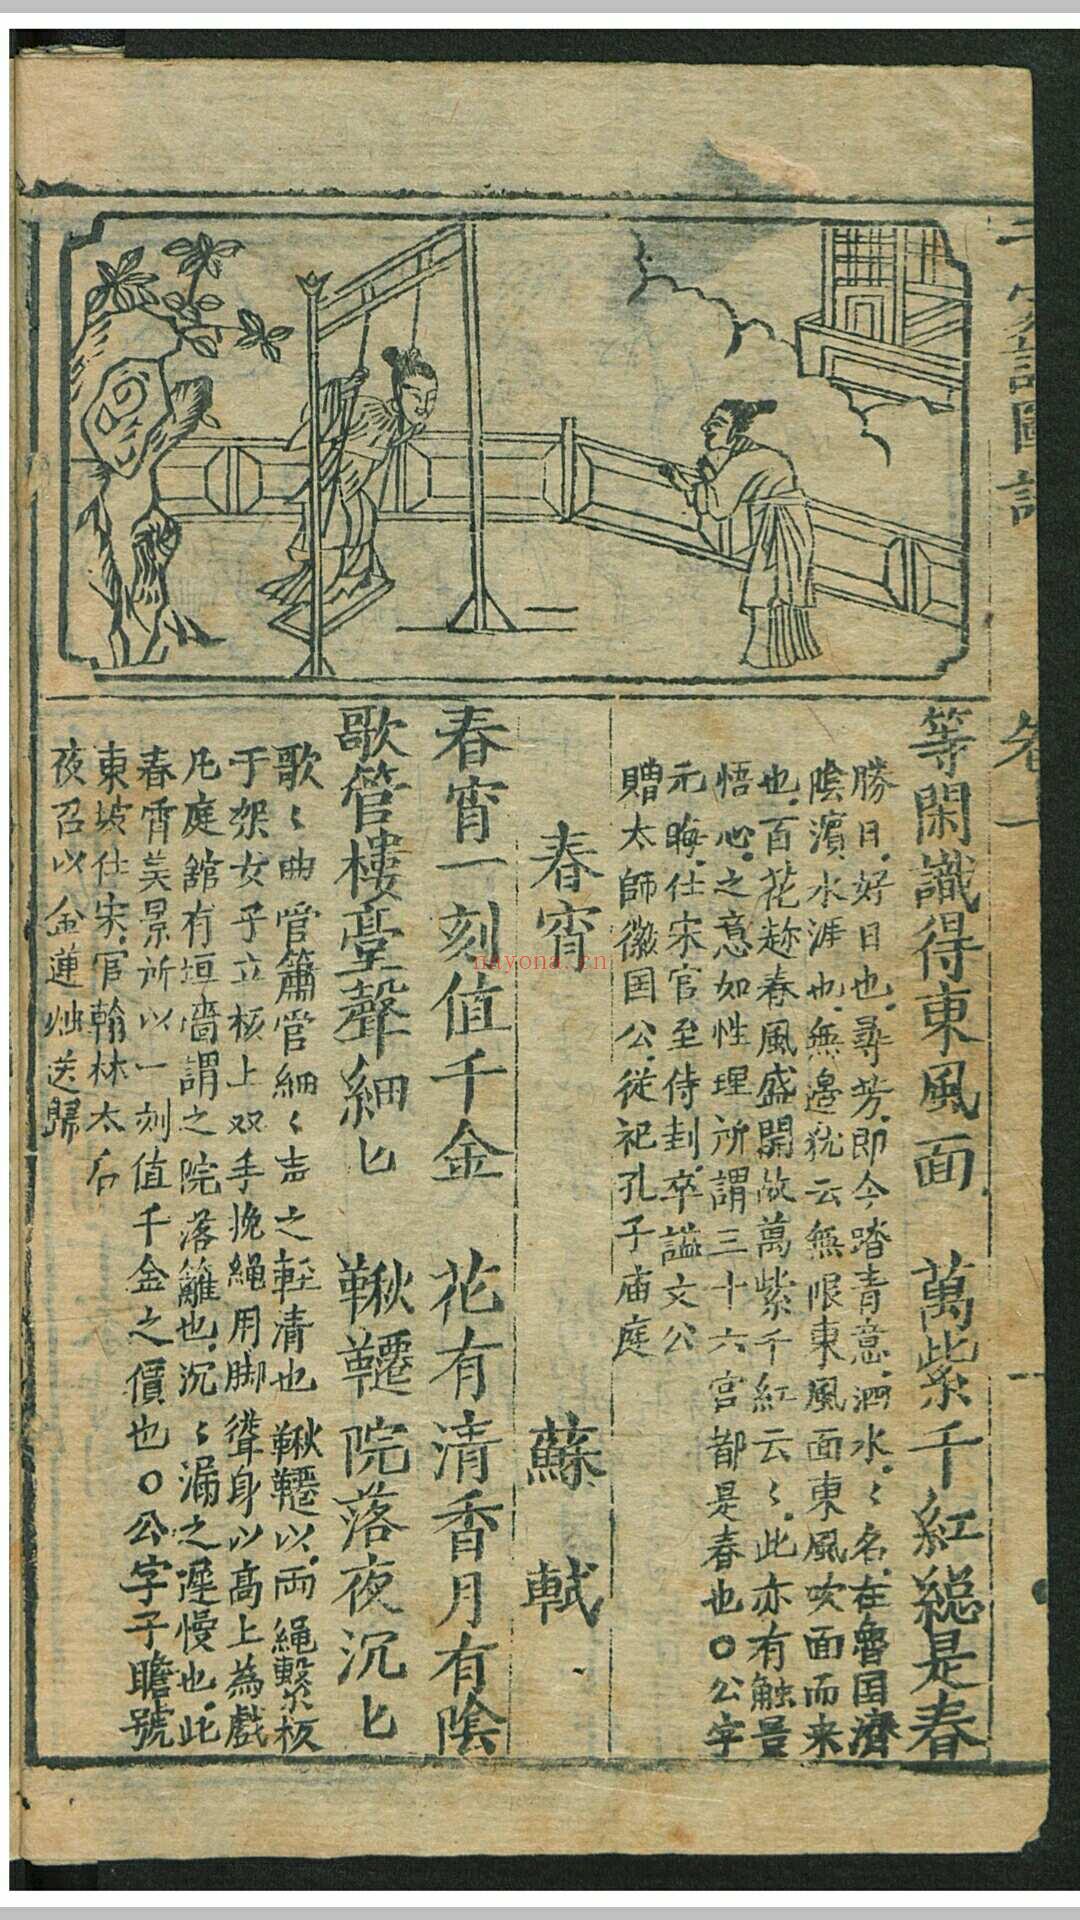 千家詩圖註
卷一
一
等閑識得東風面　萬紫千紅緫是春
勝日．好日也．尋芳．即今踏青意．泗水．〻名．在魯国濟
陰濵水涯也．無邉犹云無限東風面東風吹面而来
也．百花趂春風盛開故萬紫千紅云〻．此亦有触景
悟心之意如性理所謂三十六宮都是春也〇公字
元晦．仕宋官至侍封．卒謚文公
贈太師徽国公．従祀孔子庙庭
春宵　蘇軾
春宵一刻値千金　花有清香月有陰
歌管樓臺聲細匕　鞦韆院落夜沉匕
歌〻曲管簫管細〻声之輕清也　鞦韆以両繩繫板
于架女子立板上双手挽繩用脚聳身以高上為戯
凡庭舘有垣墻謂之院落籬也．沉〻漏之遲慢也．此
春宵美景所以一刻值千金之價也〇公字子瞻號
東坡仕宋．官翰林太后
夜召以金蓮烛送歸
nayona.cn